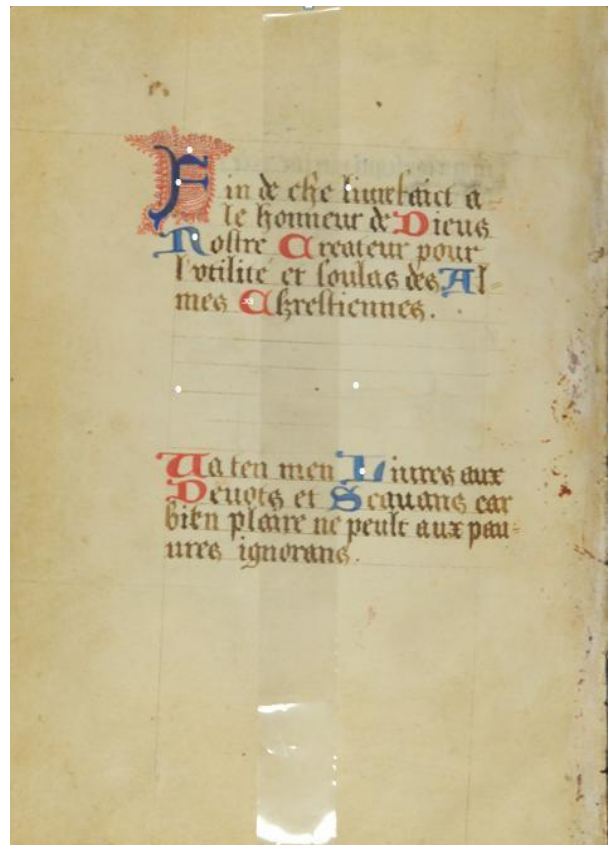 Fin de che liure faict a
le honneur de Dieus
Nostre Createur pour
l'utilité et soulas des Al
mes Chrestiennes.
Va ten men Liures aux
Deuots et Scauans car
bien plaire ne peult aux pau-
ures ignorans.